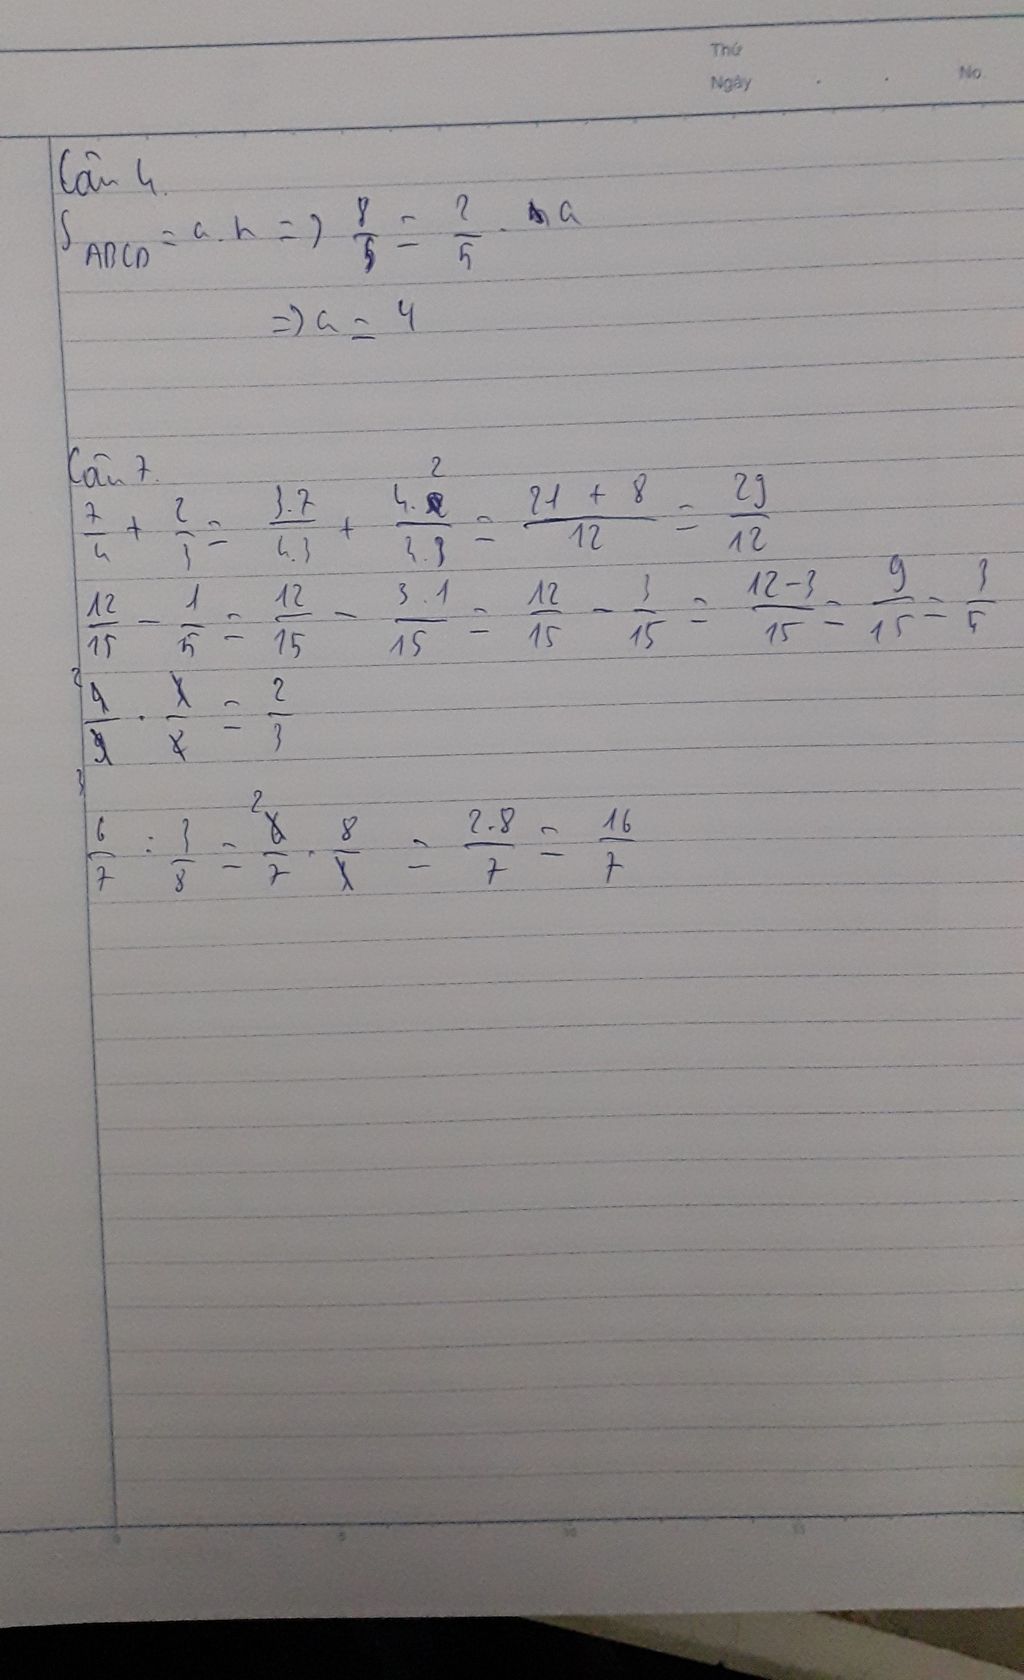 Thứ
Ngày . . No
Câu 4.
S ABCD = a.h => 8/5 = 2/5 . a
=> a = 4
Câu 7.
7/4 + 2/3 = 3.7/4.3 + 4.2/3 = 21 + 8/12 = 29/12
12/15 - 1/5 = 12/15 - 3.1/15 = 12/15 - 3/15 = 12-3/15 = 9/15 = 3/5
2/3
6/7 : 3/8 = 6/7 . 8/3 = 2.8/7 = 16/7
0 5 10 15